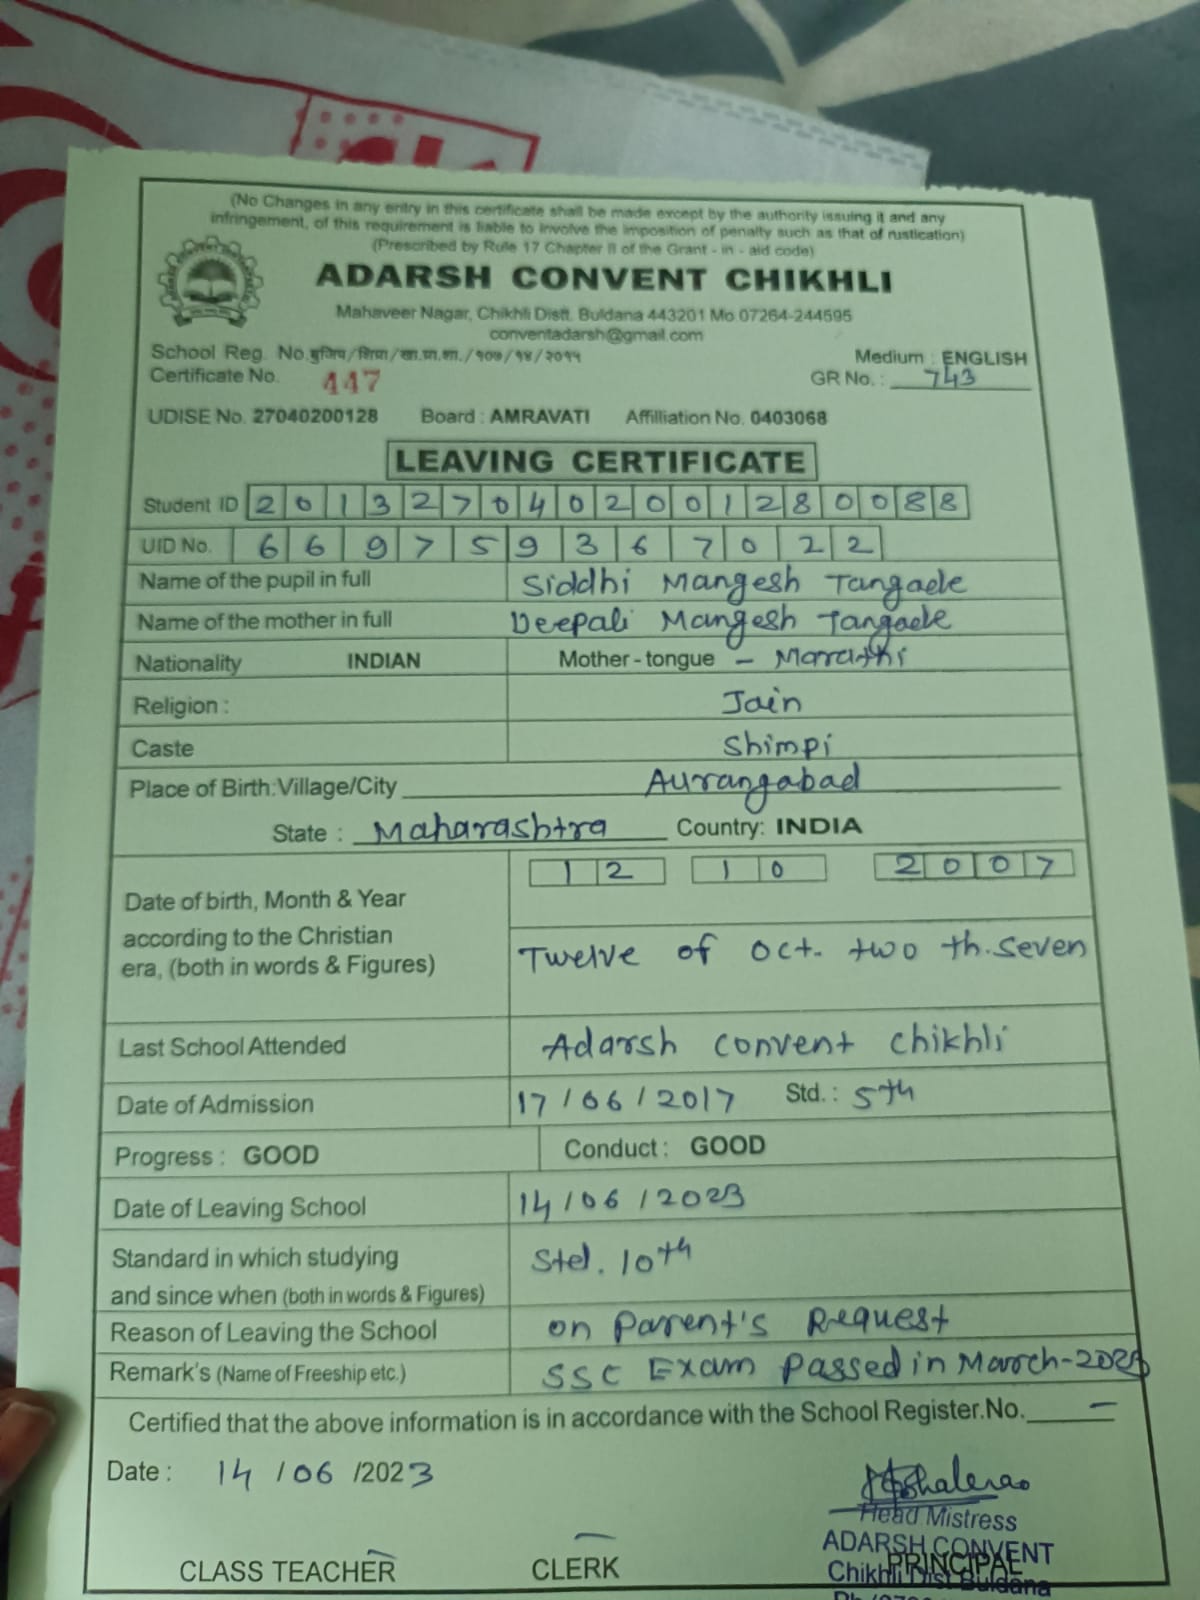 (No Changes in any entry in this certificate shall be made except by the authority issuing it and any
infringement, of this requirement is liable to involve the imposition of penalty such as that of rustication)
(Prescribed by Rule 17 Chapter II of the Grant - in - aid code)
ADARSH CONVENT CHIKHLI
Mahaveer Nagar, Chikhli Distt. Buldana 443201 Mo.07264-244595
conventadarsh@gmail.com
School Reg. No. /१०७/१४/२०११ Medium : ENGLISH
Certificate No. 447 GR No. : 743
UDISE No. 27040200128 Board : AMRAVATI Affilliation No. 0403068
LEAVING CERTIFICATE
Student ID 2013270402001280088
UID No. 669759367022
Name of the pupil in full Siddhi Mangesh Tangade
Name of the mother in full Deepali Mangesh Tangade
Nationality INDIAN Mother - tongue - Marathi
Religion : Jain
Caste Shimpi
Place of Birth:Village/City Aurangabad
State : Maharashtra Country: INDIA
Date of birth, Month & Year 12 10 2007
according to the Christian
era, (both in words & Figures) Twelve of Oct. two th. Seven
Last School Attended Adarsh Convent Chikhli
Date of Admission 17/06/2017 Std. : 5th
Progress : GOOD Conduct : GOOD
Date of Leaving School 14/06/2023
Standard in which studying Std. 10th
and since when (both in words & Figures)
Reason of Leaving the School on Parent's Request
Remark's (Name of Freeship etc.) SSC Exam Passed in March-2023
Certified that the above information is in accordance with the School Register.No. -
Date : 14/06/2023
Head Mistress
ADARSH CONVENT
CLASS TEACHER CLERK PRINCIPAL
Chikhli Dist Buldana